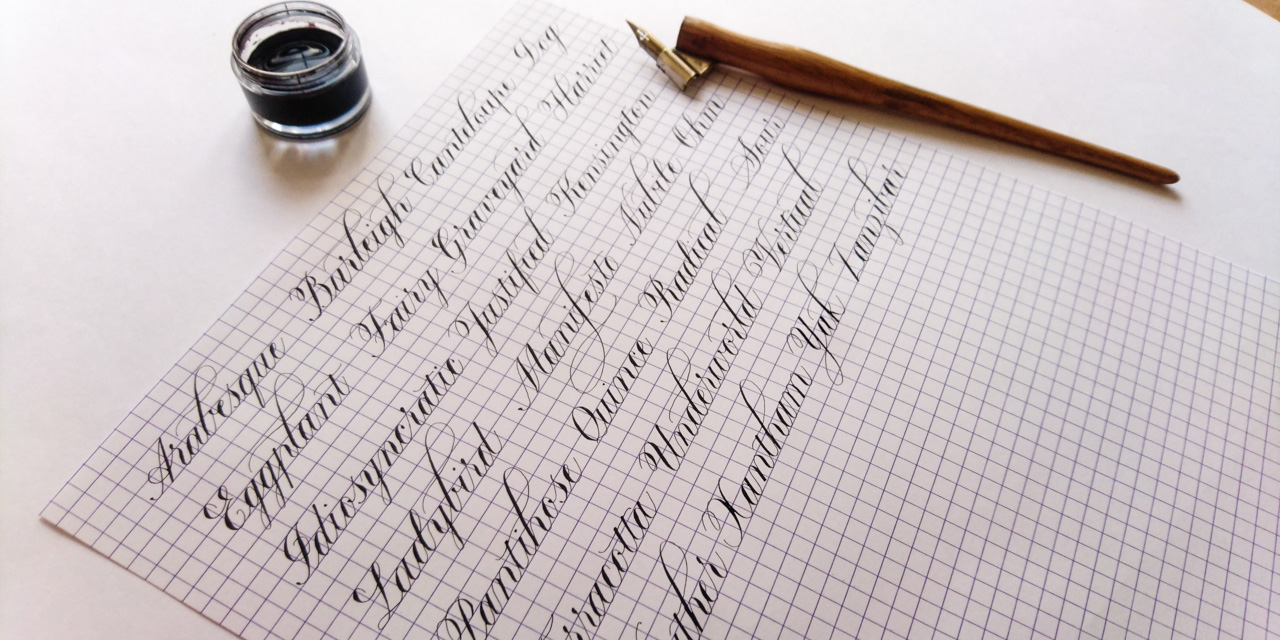 Arabesque Burleigh Cantaloupe Dog
Eggplant Fairy Graveyard Harriet
Idiosyncratic Justified Kensington
Ladybird Manifesto Nubile Ohm
Pantihose Quince Radical
Underworld Virtual
Xantham Yak Zanzibar